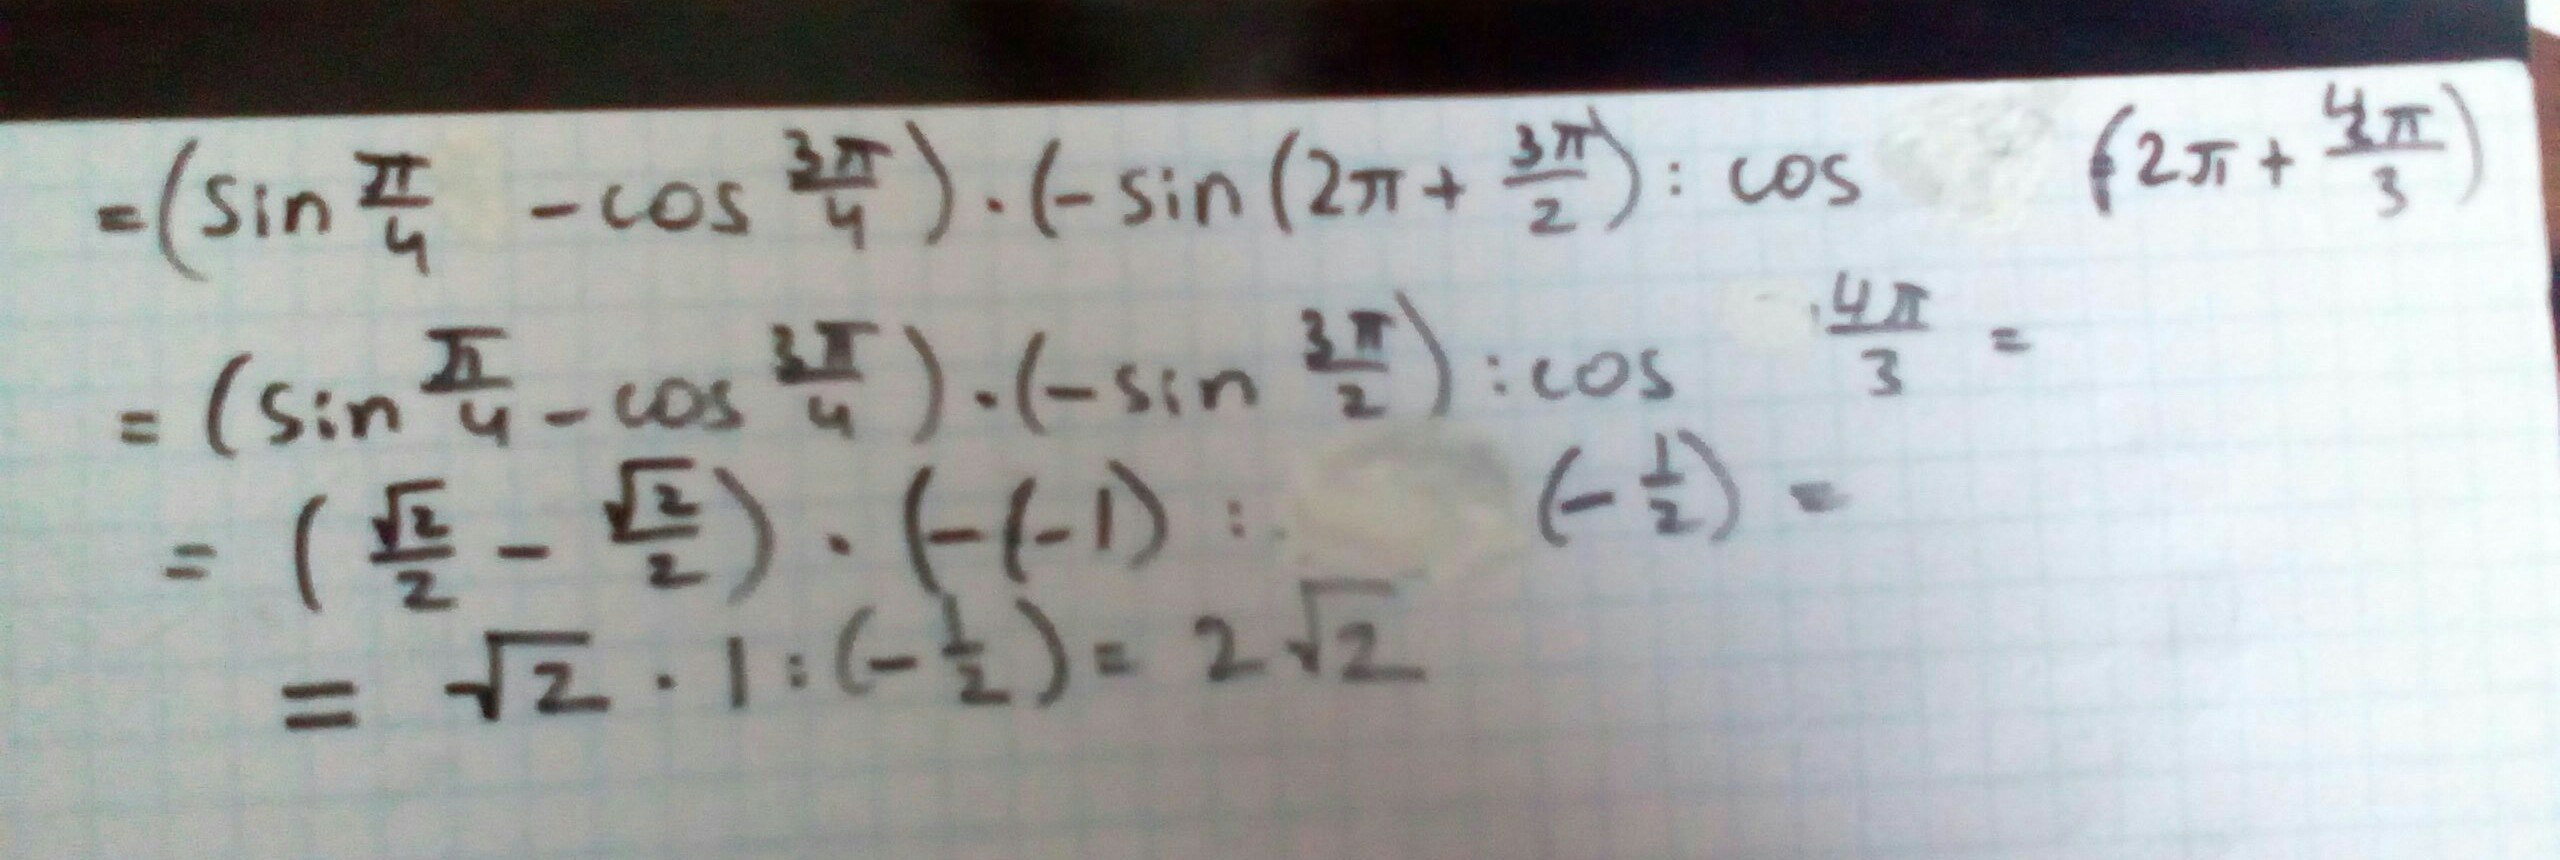 =(sin π/4 - cos 3π/4) · (- sin (2π + 3π/2) : cos (2π + 4π/3)
= (sin π/4 - cos 3π/4) · (- sin 3π/2) : cos 4π/3 =
= (√2/2 - √2/2) · (-(-1) : (- 1/2) =
= √2 · 1 : (- 1/2) = 2√2